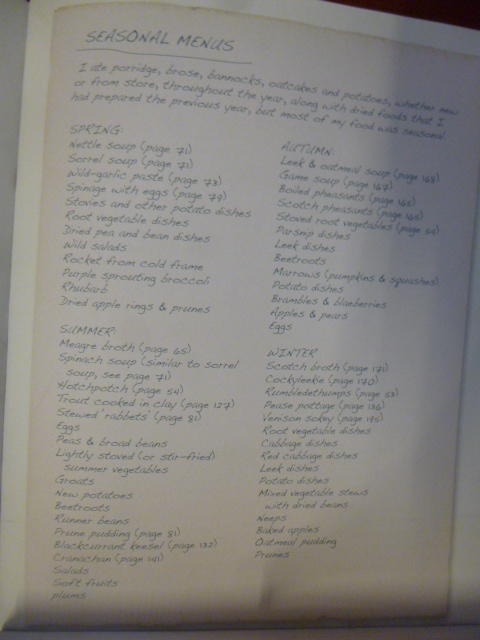 SEASONAL MENUS
I ate porridge, brose, bannocks, oatcakes and potatoes, whether new
or from store, throughout the year, along with dried foods that I
had prepared the previous year, but most of my food was seasonal.
SPRING:
Nettle soup (page 71)
Sorrel soup (page 71)
Wild-garlic paste (page 73)
Spinage with eggs (page 79)
Stovies and other potato dishes
Root vegetable dishes
Dried pea and bean dishes
Wild salads
Rocket from cold frame
Purple sprouting broccoli
Rhubarb
Dried apple rings & prunes
SUMMER:
Meagre broth (page 65)
Spinach soup (similar to sorrel
soup, see page 71)
Hotchpotch (page 54)
Trout cooked in clay (page 127)
Stewed 'rabbets' (page 81)
Eggs
Peas & broad beans
Lightly stoved (or stir-fried)
summer vegetables
Groats
New potatoes
Beetroots
Runner beans
Prune pudding (page 81)
Blackcurrant keesel (page 132)
Cranachan (page 141)
Salads
Soft fruits
plums
AUTUMN:
Leek & oatmeal soup (page 168)
Game soup (page 167)
Boiled pheasants (page 165)
Scotch pheasants (page 165)
Stoved root vegetables (page 64)
Parsnip dishes
Leek dishes
Beetroots
Marrows (pumpkins & squashes)
Potato dishes
Brambles & blaeberries
Apples & pears
Eggs
WINTER
Scotch broth (page 171)
Cockyleekie (page 170)
Rumbledethumps (page 53)
Pease pottage (page 136)
Venison sokey (page 195)
Root vegetable dishes
Cabbage dishes
Red cabbage dishes
Leek dishes
Potato dishes
Mixed vegetable stews
with dried beans
Neeps
Baked apples
Oatmeal pudding
Prunes